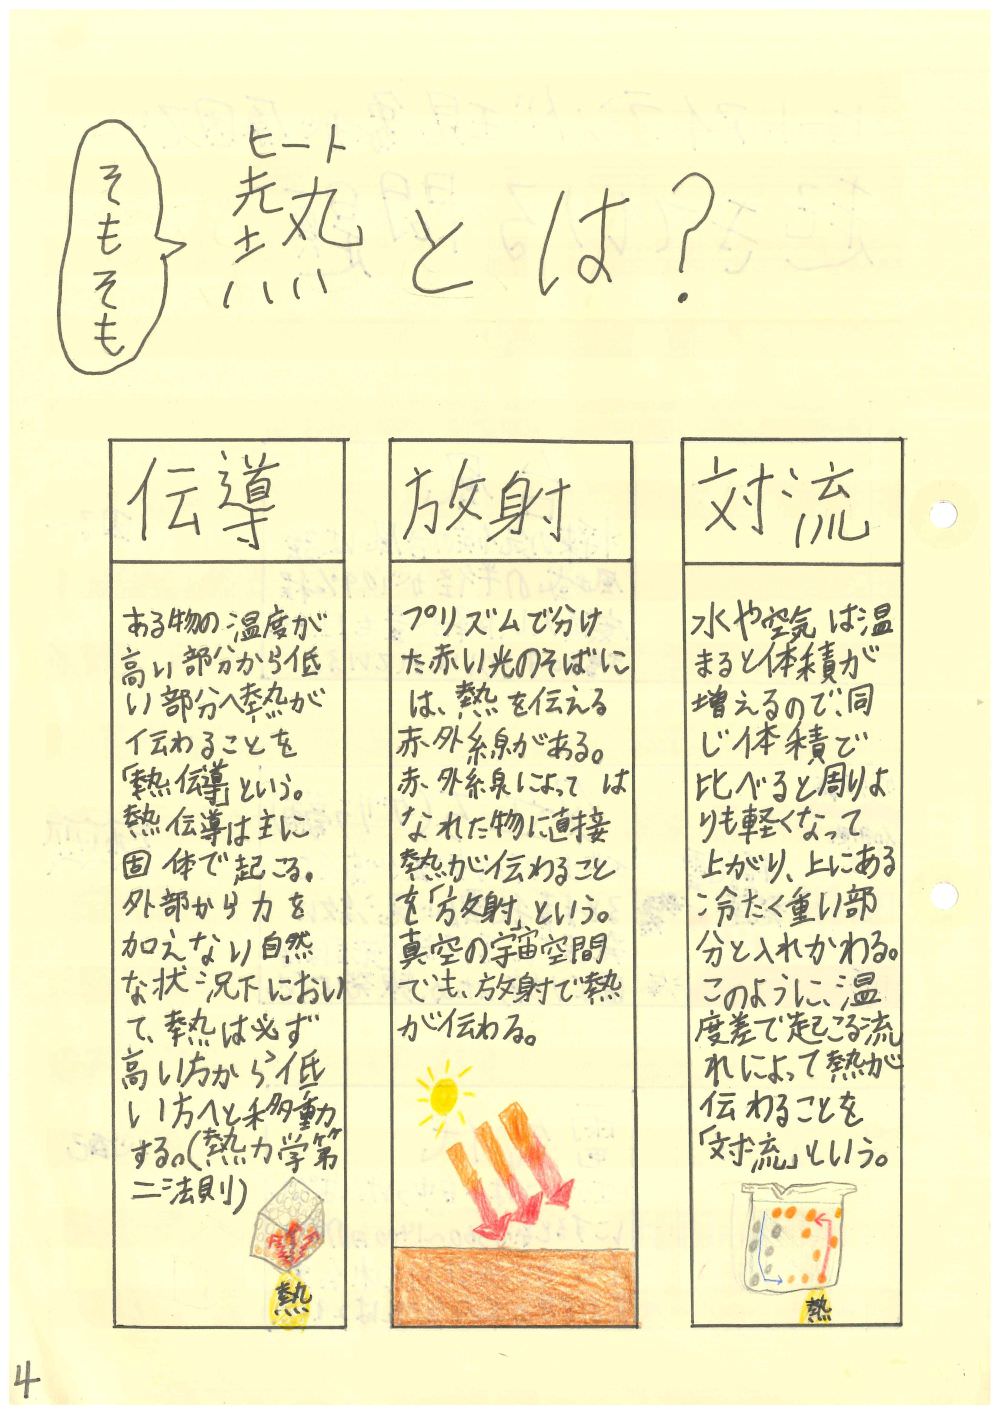 そもそも
ヒート
熱とは?
伝導
ある物の温度が
高い部分から低
い部分へ熱が
伝わることを
「熱伝導」という。
熱伝導は主に
固体で起こる。
外部から力を
加えない自然
な状況下におい
て、熱は必ず
高い方から低
い方へと移動
する。(熱力学第
二法則)
熱
放射
プリズムで分け
た赤い光のそばに
は、熱を伝える
赤外線がある。
赤外線によって は
なれた物に直接
熱が伝わること
を「放射」という。
真空の宇宙空間
でも、放射で熱
が伝わる。
対流
水や空気は温
まると体積が
増えるので、同
じ体積で
比べると周りよ
りも軽くなって
上がり、上にある
冷たく重い部
分と入れかわる。
このように、温
度差で起こる流
れによって熱が
伝わることを
「対流」という。
熱
4